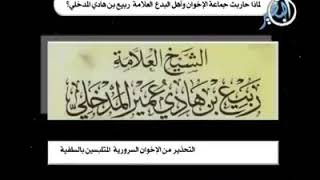 لماذا حاربت جماعة الإخوان وأهل البدع العلامة ربيع بن هادي المدخلي؟
الشيخ العلامة
ربيع بن هادي عمير المدخلي
التحذير من الإخوان السرورية المتلبسين بالسلفية